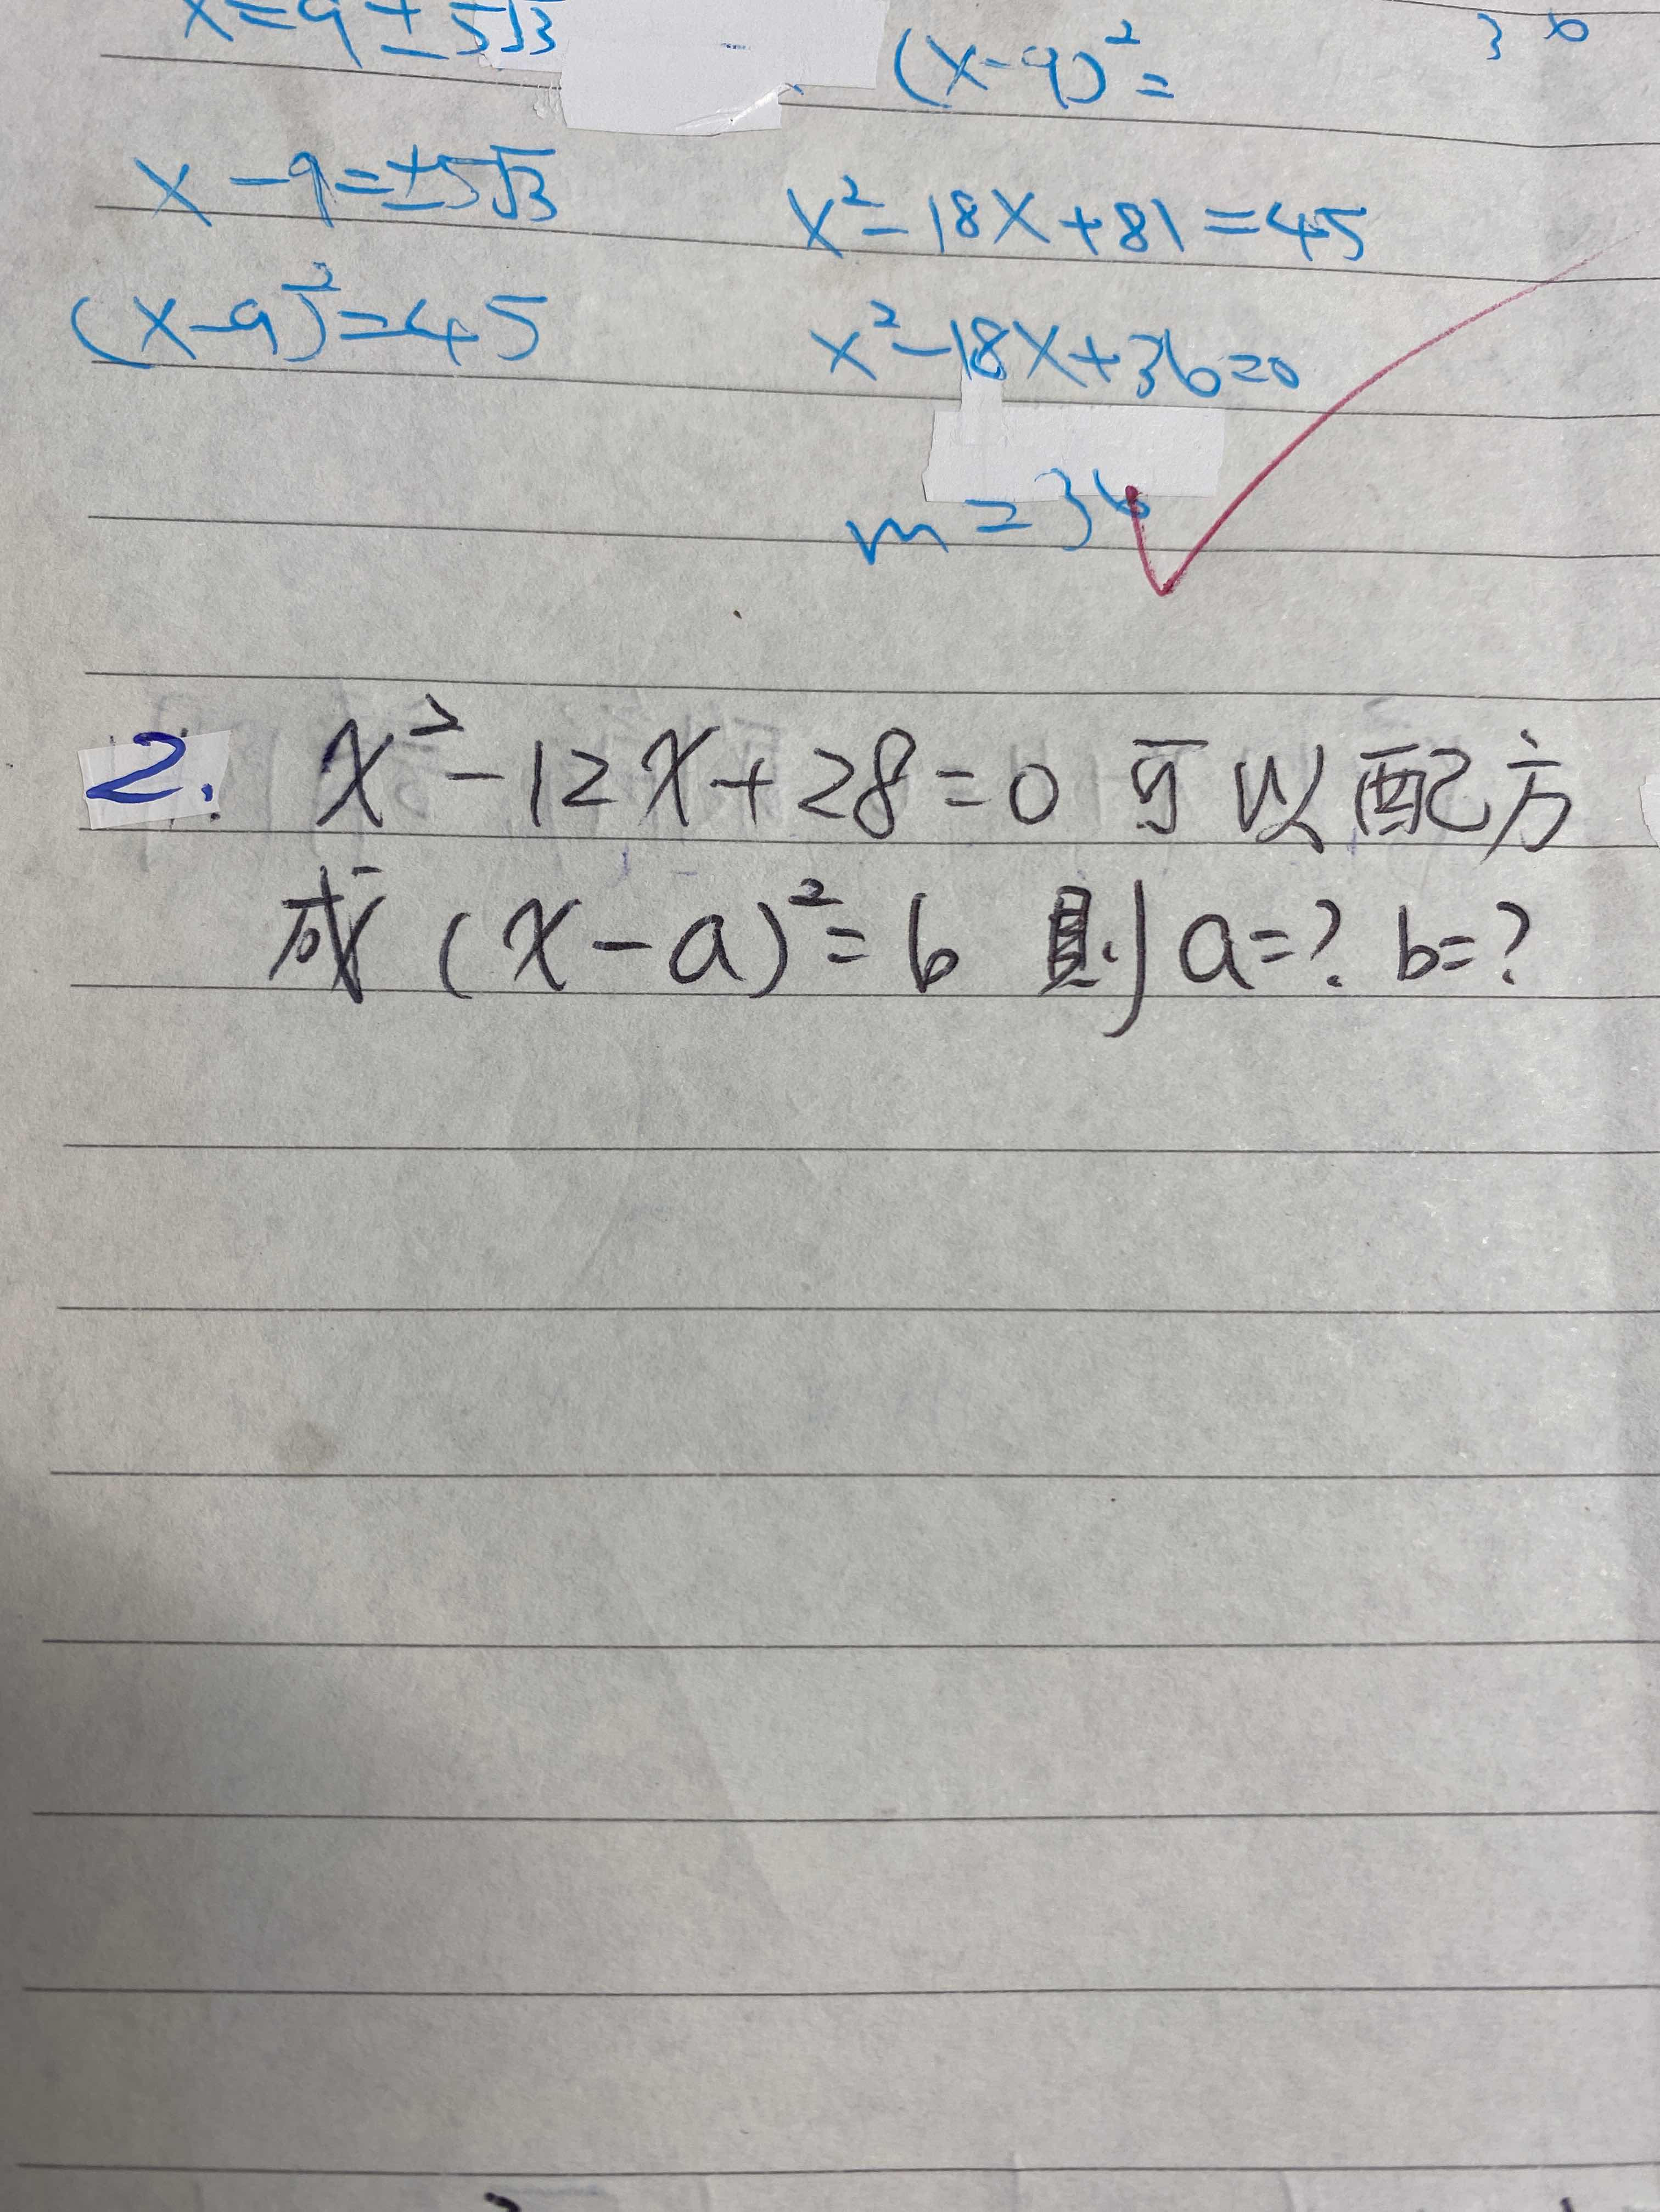 x=9±5√3
(x-9)²=
36
x-9=±5√3
x²-18x+81=45
(x-9)²=45
x²-18x+36=0
m=36
2. x²-12x+28=0 可以配方
成 (x-a)²=b 则 a=? b=?